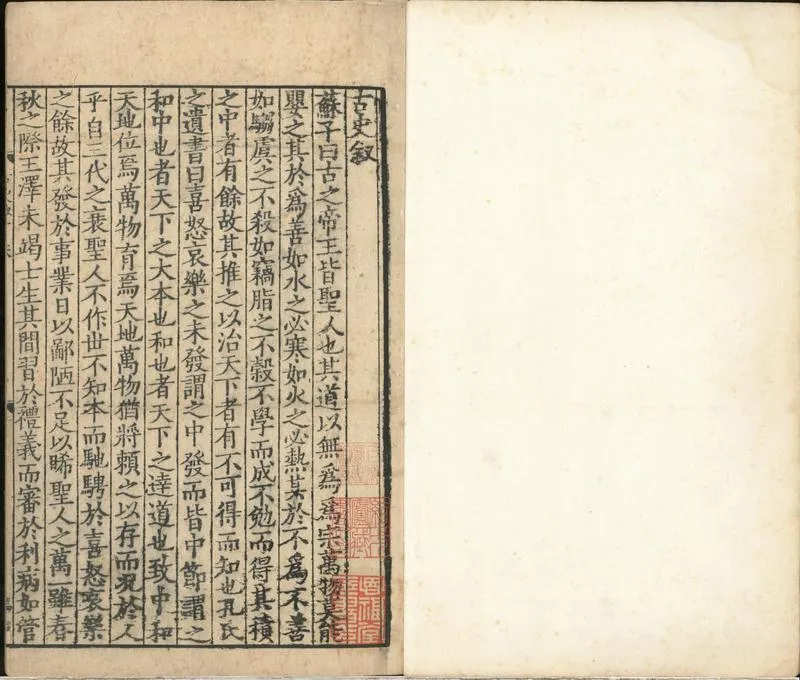 古史叙
蘇子曰古之帝王皆聖人也其道以無爲爲宗萬物莫能
嬰之其於爲善如水之必寒如火之必熱其於不爲不善
如騶虞之不殺如竊脂之不穀不學而成不勉而得其積
之中者有餘故其推之以治天下者有不可得而知也孔氏
之遺書曰喜怒哀樂之未發謂之中發而皆中節謂之
和中也者天下之大本也和也者天下之達道也致中和
天地位焉萬物育焉天地萬物猶將賴之以存而況於人
乎自三代之衰聖人不作世不知本而馳騁於喜怒哀樂
之餘故其發於事業日以鄙陋不足以睎聖人之萬一雖春
秋之際王澤未竭士生其間習於禮義而審於利病如管